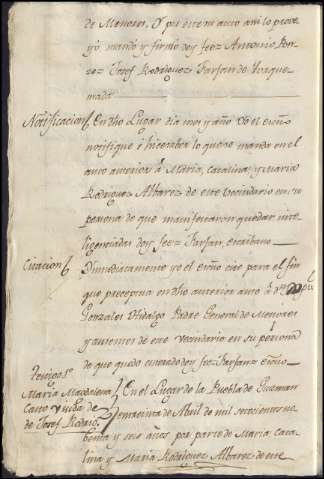 de Menores, Y por este mi auto asi lo prove
yó, mandó y firmó doy fee= Antonio
Josef Rodriguez= Farfan de Torque
mada
Notificacion En dho Lugar dia mes y año Yo el essno
notifique è hice saber lo que se manda en el
auto anterior à Maria, Catalina, y Maria
Rodriguez Albarez de este vecindario en su
persona de que manifestaron quedar inte
ligenciadas doy fee= Farfan, escribano
Citacion Inmediatamente yo el essno cité para el fin
que preceptua en dho anterior auto à dn
Gonzales Hidalgo Padre General de Menores
y ausentes de este vecindario en su persona
de que quedó enterado doy fee= Farfan= essno
Testigo 1º
Maria Magdalena
Cano viuda de
de Josef Rodrigz
En el Lugar de la Puebla de Guzman
en
de Abril de mil setecientos no
benta y seis años por parte de Maria Cata
lina y Maria Rodriguez Albarez de este